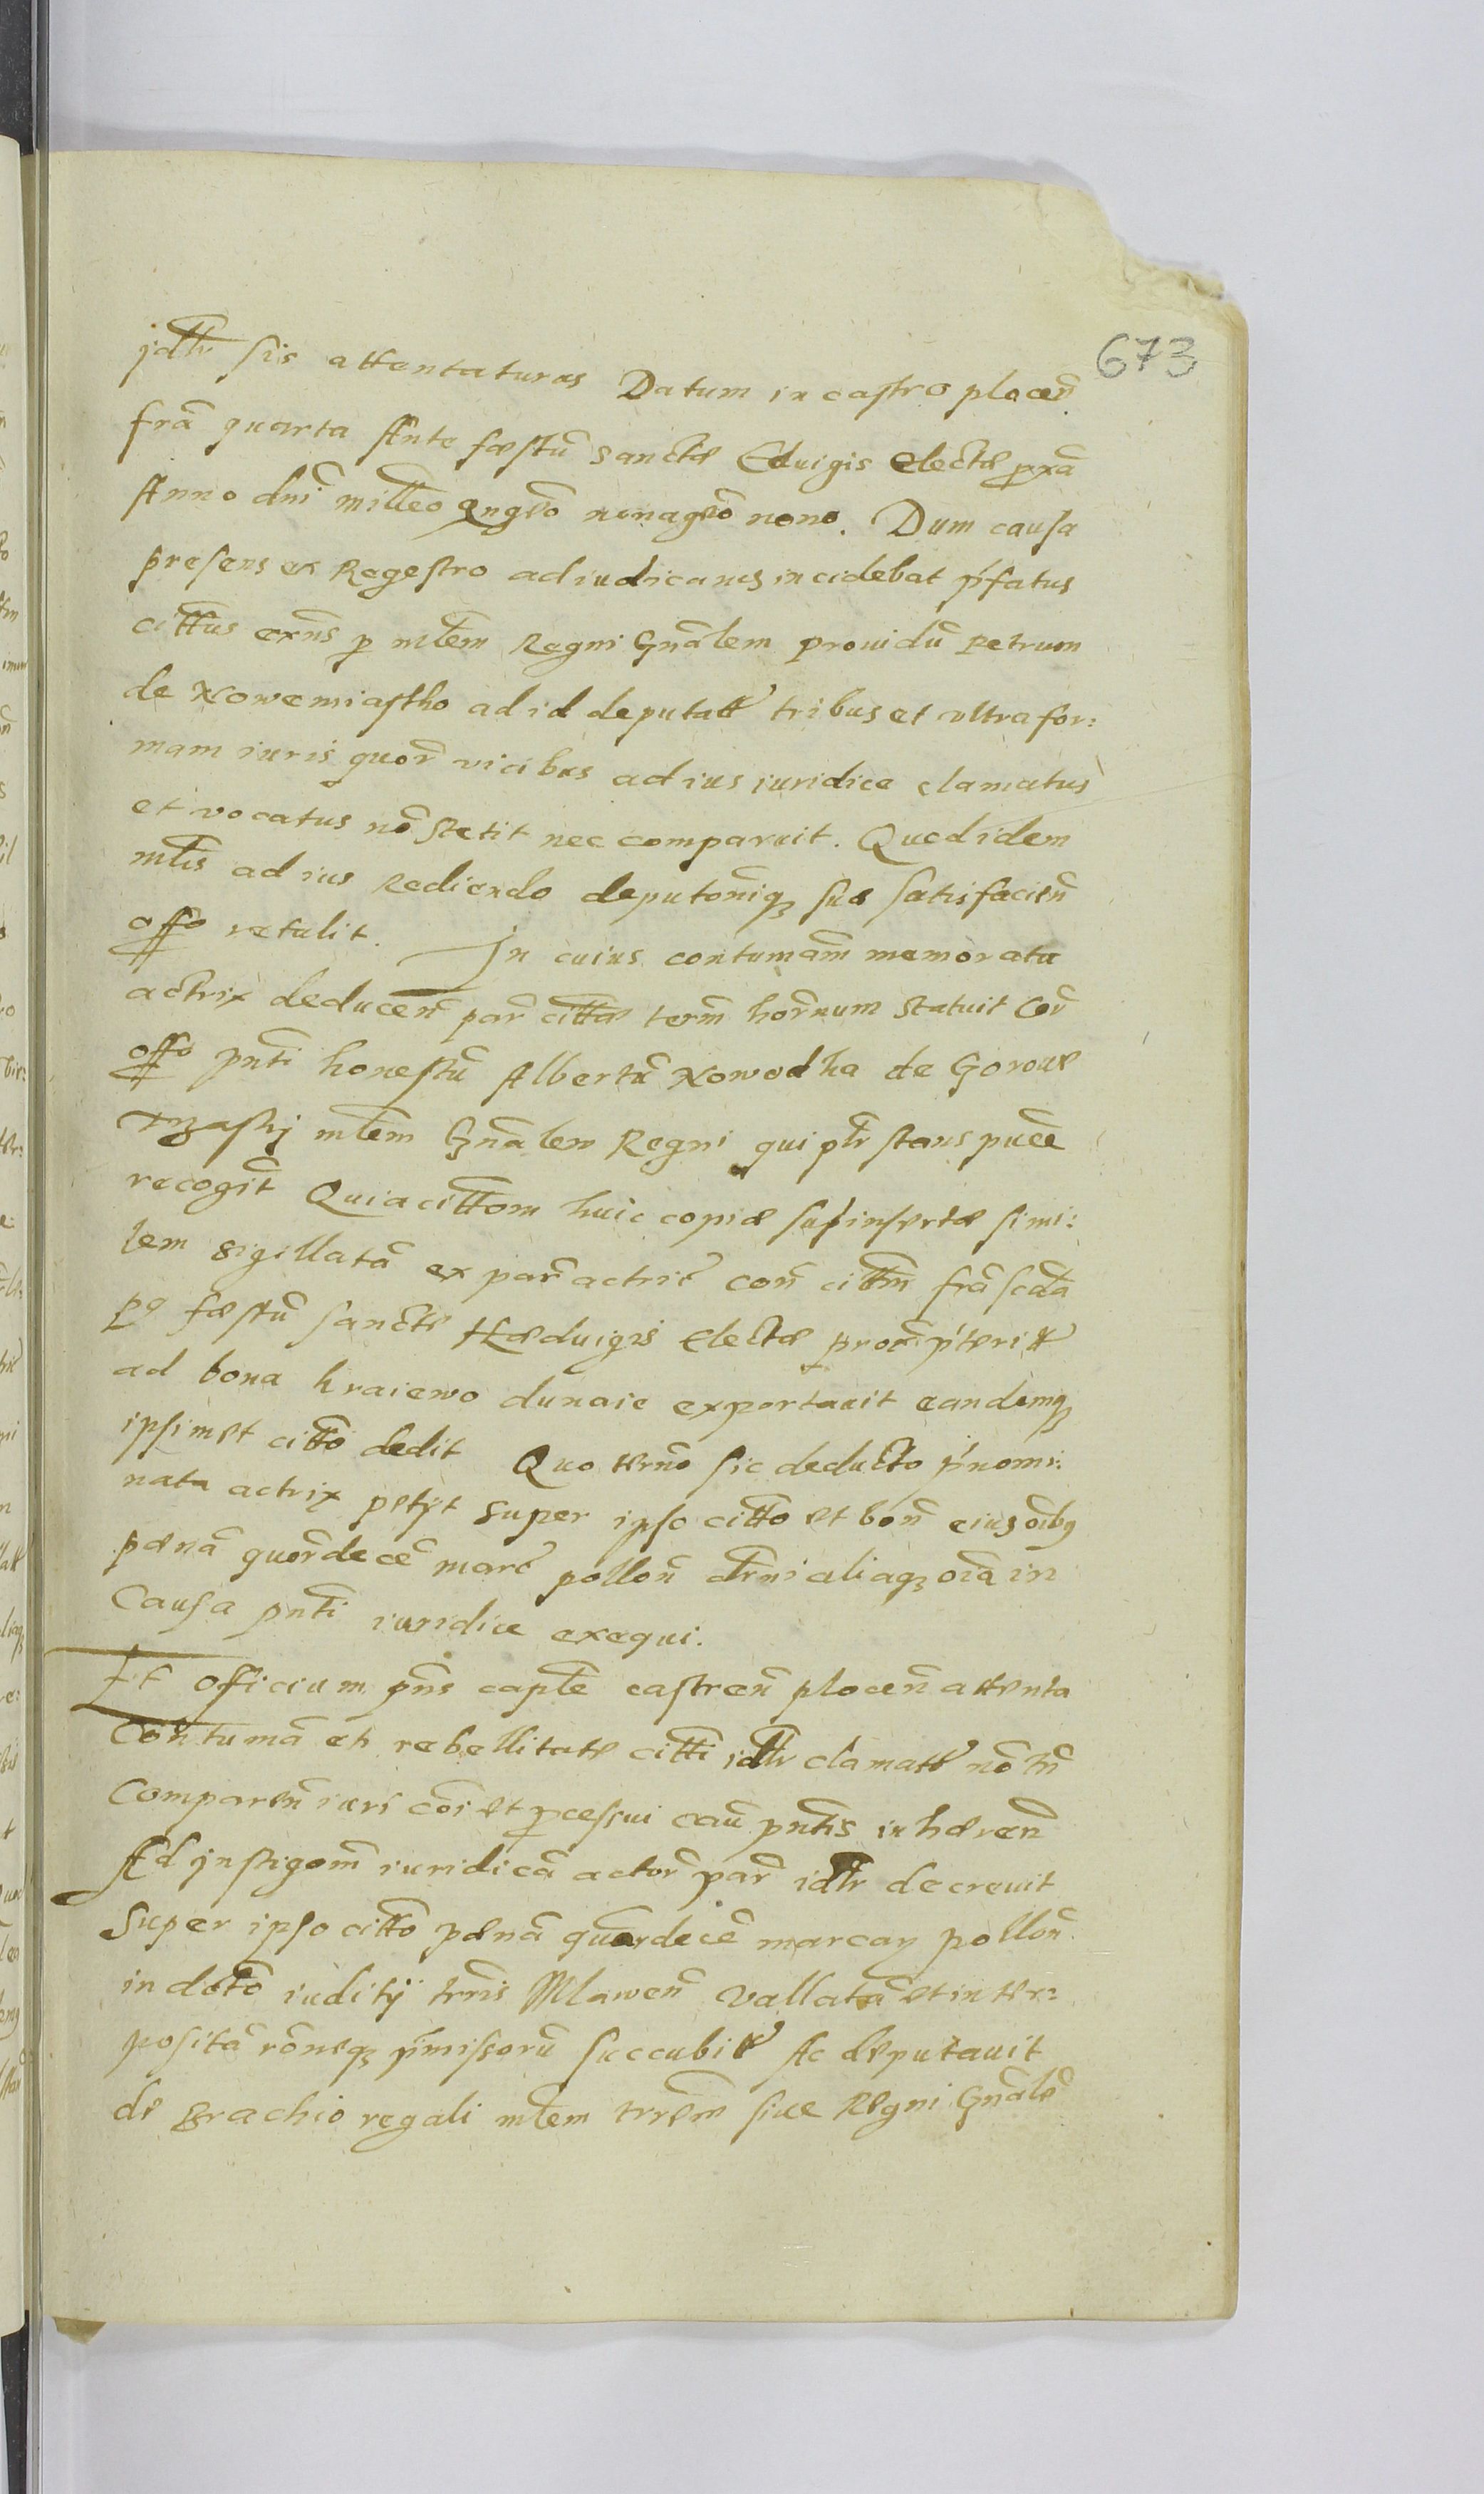 673
jdtr sis attentaturus Datum in castro plocen̄
fr̄a quarta Ante fæstū sanctæ Eduigis electæ pxā
Anno dnī milleō qngēo nonagēo nono. Dum causa
presens ex Regestro adiudicanes incidebat p̄fatus
cittus exn̄s p mlem Regni Gnālem prouidū Petrum
de Nowemiastho ad id deputatt tribus et vltra for:
mam iuris quor̄ vicibus ad ius iuridice clamatus
et vocatus nō stetit nec comparuit. Quod idem
mlis ad ius rediendo deputonīq; suæ satisfacien̄
offo retulit. In cuius contumām memorata
actrix deducen̄ par̄ cittæ term̄ hor̄num statuit Cor̄
offo pntī honestū Albertū Nowodka de Goroue
Trzaski mlem Gnālem Regni qui plr̄ stans puce
recogīt Quia cittom huic copiæ sup̄insertæ simi:
lem sigillatā ex par̄ actric̄ con̄ cittm̄ fr̄a scdā
po fæstū sanctæ Hæduigis Electæ pror̄ p̄terit
ad bona kraiewo dunaie exportauit eandemq;
ipsimet cittō dedit Quo termō sic deducto p̄nomi:
nata actrix petyt super ipso citto et bon̄ eius oībq
pænā quordecē marc̄ pollon̄ aliaq; oīa in
Causa pntī iuridice exequi.
Et officium pn̄s caplē castren̄ plocen̄ attenta
Contumā et rebellitate cittī idtr clamatt nō tn̄
Comparen̄ iuri cōi et pcessui cau pntīs inhæren̄
Ad jnstigom̄ iuridicā actor̄ par̄ idtr decreuit
super ipso cittō pænā quordecē marcar pollon̄
in dcto iuditij trrīs Mlawen̄ vallatā et inter:
positā rōneq; p̄missorū succubit Ac deputauit
de Brachio regali mlem trrēm siue Regni Gnālē